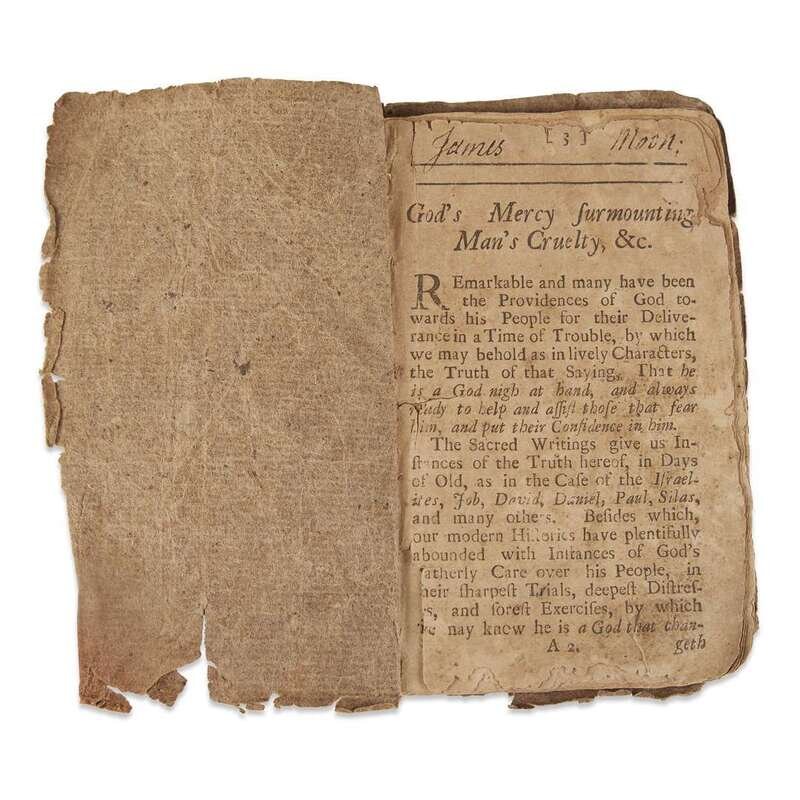 James [ 3 ] Moon:
God's Mercy ſurmounting
Man's Cruelty, &c.
REmarkable and many have been
the Providences of God to-
wards his People for their Delive-
rance in a Time of Trouble, by which
we may behold as in lively Characters,
the Truth of that Saying, That he
is a God nigh at hand, and always
ready to help and aſſiſt thoſe that fear
him, and put their Confidence in him.
The Sacred Writings give us In-
ſtances of the Truth hereof, in Days
of Old, as in the Caſe of the Iſrael-
ites, Job, David, Daniel, Paul, Silas,
and many others. Beſides which,
our modern Hiſtories have plentifully
abounded with Inſtances of God's
fatherly Care over his People, in
their ſharpeſt Trials, deepeſt Diſtreſ-
es, and ſoreſt Exerciſes, by which
we may know he is a God that chan-
A 2. geth